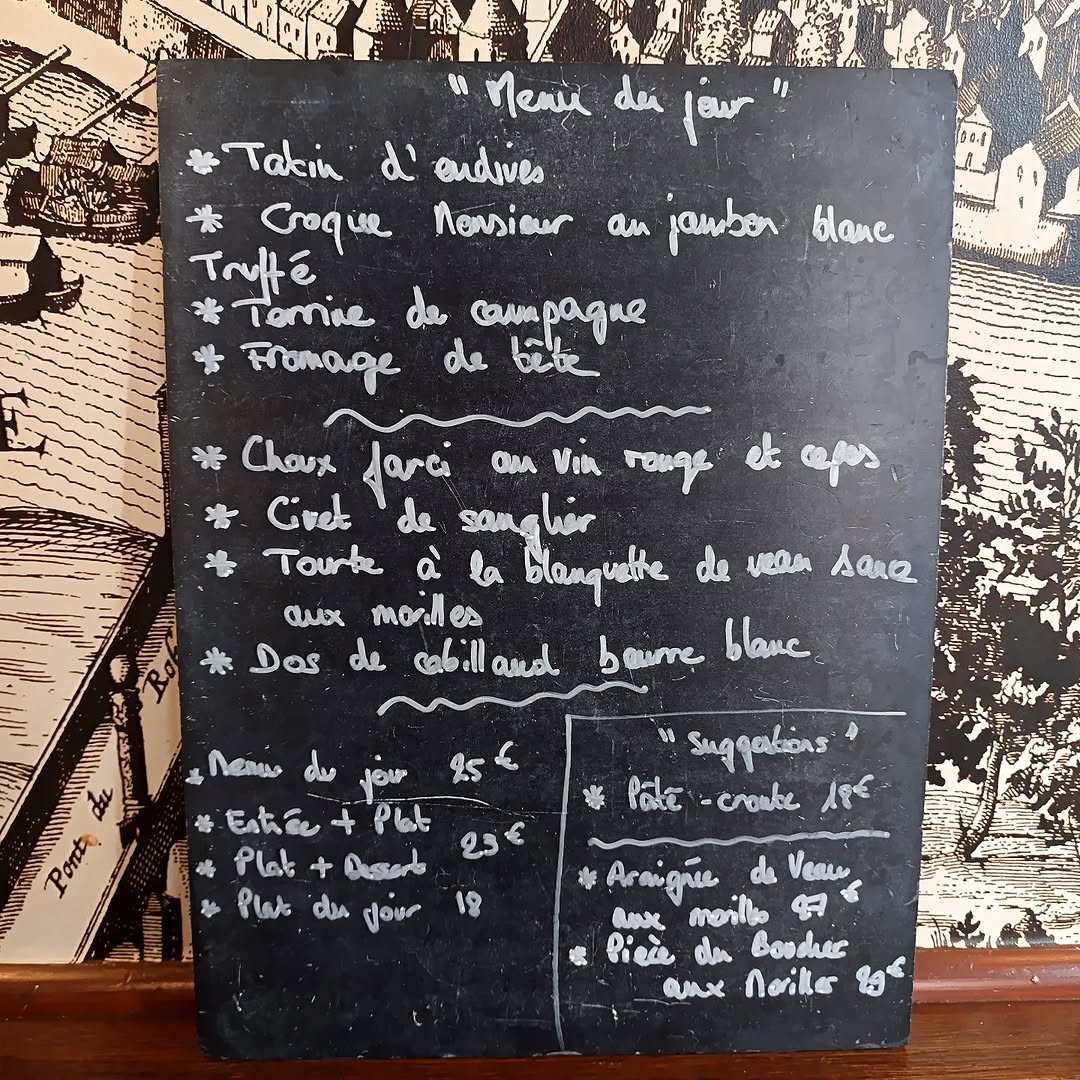 " Menu du jour "
* Tatin d'endives
* Croque Monsieur au jambon blanc
Truffé
* Terrine de campagne
* Fromage de tête
* Choux farci au vin rouge et cepes
* Civet de sanglier
* Tourte à la blanquette de veau sauce
aux morilles
* Dos de cabillaud beurre blanc
* Menu du jour 25 €
* Entrée + Plat
23 €
* Plat + Dessert
* Plat du jour 18
" Suggestions "
* Pâté - croute 18 €
* Araignée de Veau
aux morilles 27 €
* Pièce du Boucher
aux Morilles 29 €
E
Pont du